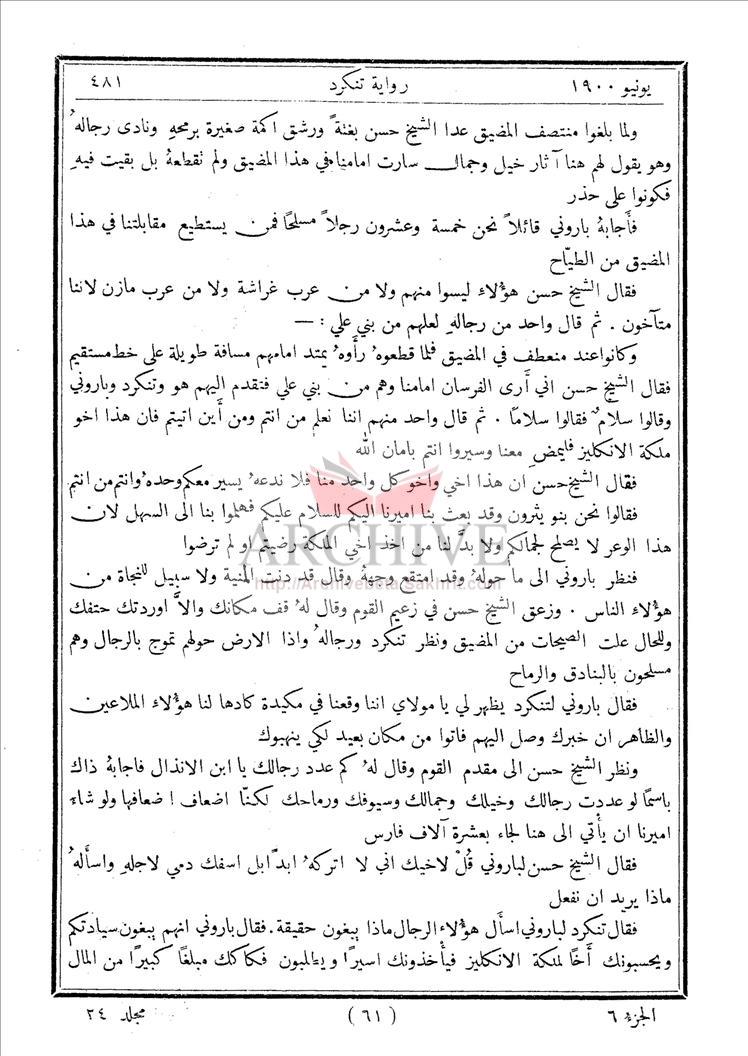 يونيو ١٩٠٠ رواية تنكرد ٤٨١
ولما بلغوا منتصف المضيق عدا الشيخ حسن بغتةً ورشق اكمة صغيرة برمحهِ ونادى رجالهُ
وهو يقول لهم هنا آثار خيل وجمال سارت امامنا في هذا المضيق ولم تقطعهُ بل بقيت فيهِ
فكونوا على حذر
فأَجابهُ باروني قائلاً نحن خمسة وعشرون رجلاً مسلحًا فمن يستطيع مقابلتنا في هذا
المضيق من الطيّاح
فقال الشيخ حسن هؤُلاء ليسوا منهم ولا من عرب غراشة ولا من عرب مازن لاننا
متآخون . ثم قال واحد من رجالهِ لعلهم من بني علي : —
وكانوا عند منعطف في المضيق فلما قطعوهُ رأَوهُ يمتد امامهم مسافة طويلة على خط مستقيم
فقال الشيخ حسن اني أَرى الفرسان امامنا وهم من بني علي فتقدم اليهم هو وتنكرد وباروني
وقالوا سلامٌ فقالوا سلامًا . ثم قال واحد منهم اننا نعلم من انتم ومن أَين اتيتم فان هذا اخو
ملكة الانكليز فليمضِ معنا وسيروا انتم بامان الله
فقال الشيخ حسن ان هذا اخي واخو كل واحد منا فلا ندعهُ يسير معكم وحدهُ وانتم من انتم
فقالوا نحن بنو يثرون وقد بعث بنا اميرنا اليكم للسلام عليكم فهلموا بنا الى السهل لان
هذا الوعر لا يصلح لجمالكم ولا بدَّ لنا من اخذ اخي الملكة رضيتم او لم ترضوا
فنظر باروني الى ما حولهُ وقد امتقع وجههُ وقال قد دنت المنية ولا سبيل للنجاة من
هؤُلاء الناس . وزعق الشيخ حسن في زعيم القوم وقال لهُ قف مكانك والاَّ اوردتك حتفك
وللحال علت الصيحات من المضيق ونظر تنكرد ورجالهُ واذا الارض حولهم تموج بالرجال وهم
مسلحون بالبنادق والرماح
فقال باروني لتنكرد يظهر لي يا مولاي اننا وقعنا في مكيدة كادها لنا هؤُلاء الملاعين
والظاهر ان خبرك وصل اليهم فاتوا من مكان بعيد لكي ينهبوك
ونظر الشيخ حسن الى مقدم القوم وقال لهُ كم عدد رجالك يا ابن الانذال فاجابهُ ذاك
باسمًا لو عددت رجالك وخيلك وجمالك وسيوفك ورماحك لكنّا اضعاف اضعافها ولو شاء
اميرنا ان يأْتي الى هنا لجاء بعشرة آلاف فارس
فقال الشيخ حسن لباروني قُلْ لاخيك اني لا اتركهُ ابدًا بل اسفك دمي لاجلهِ واسأَلهُ
ماذا يريد ان نفعل
فقال تنكرد لباروني اسأَل هؤُلاء الرجال ماذا يبغون حقيقة . فقال باروني انهم يبغون سيادتكم
ويحسبونك أَخًا لملكة الانكليز فيأْخذونك اسيرًا ويطلبون فكاكك مبلغًا كبيرًا من المال
الجزء ٦ (٦١) مجلد ٢٤
ARCHIVE
http://Archivebeta.Sakhrit.com